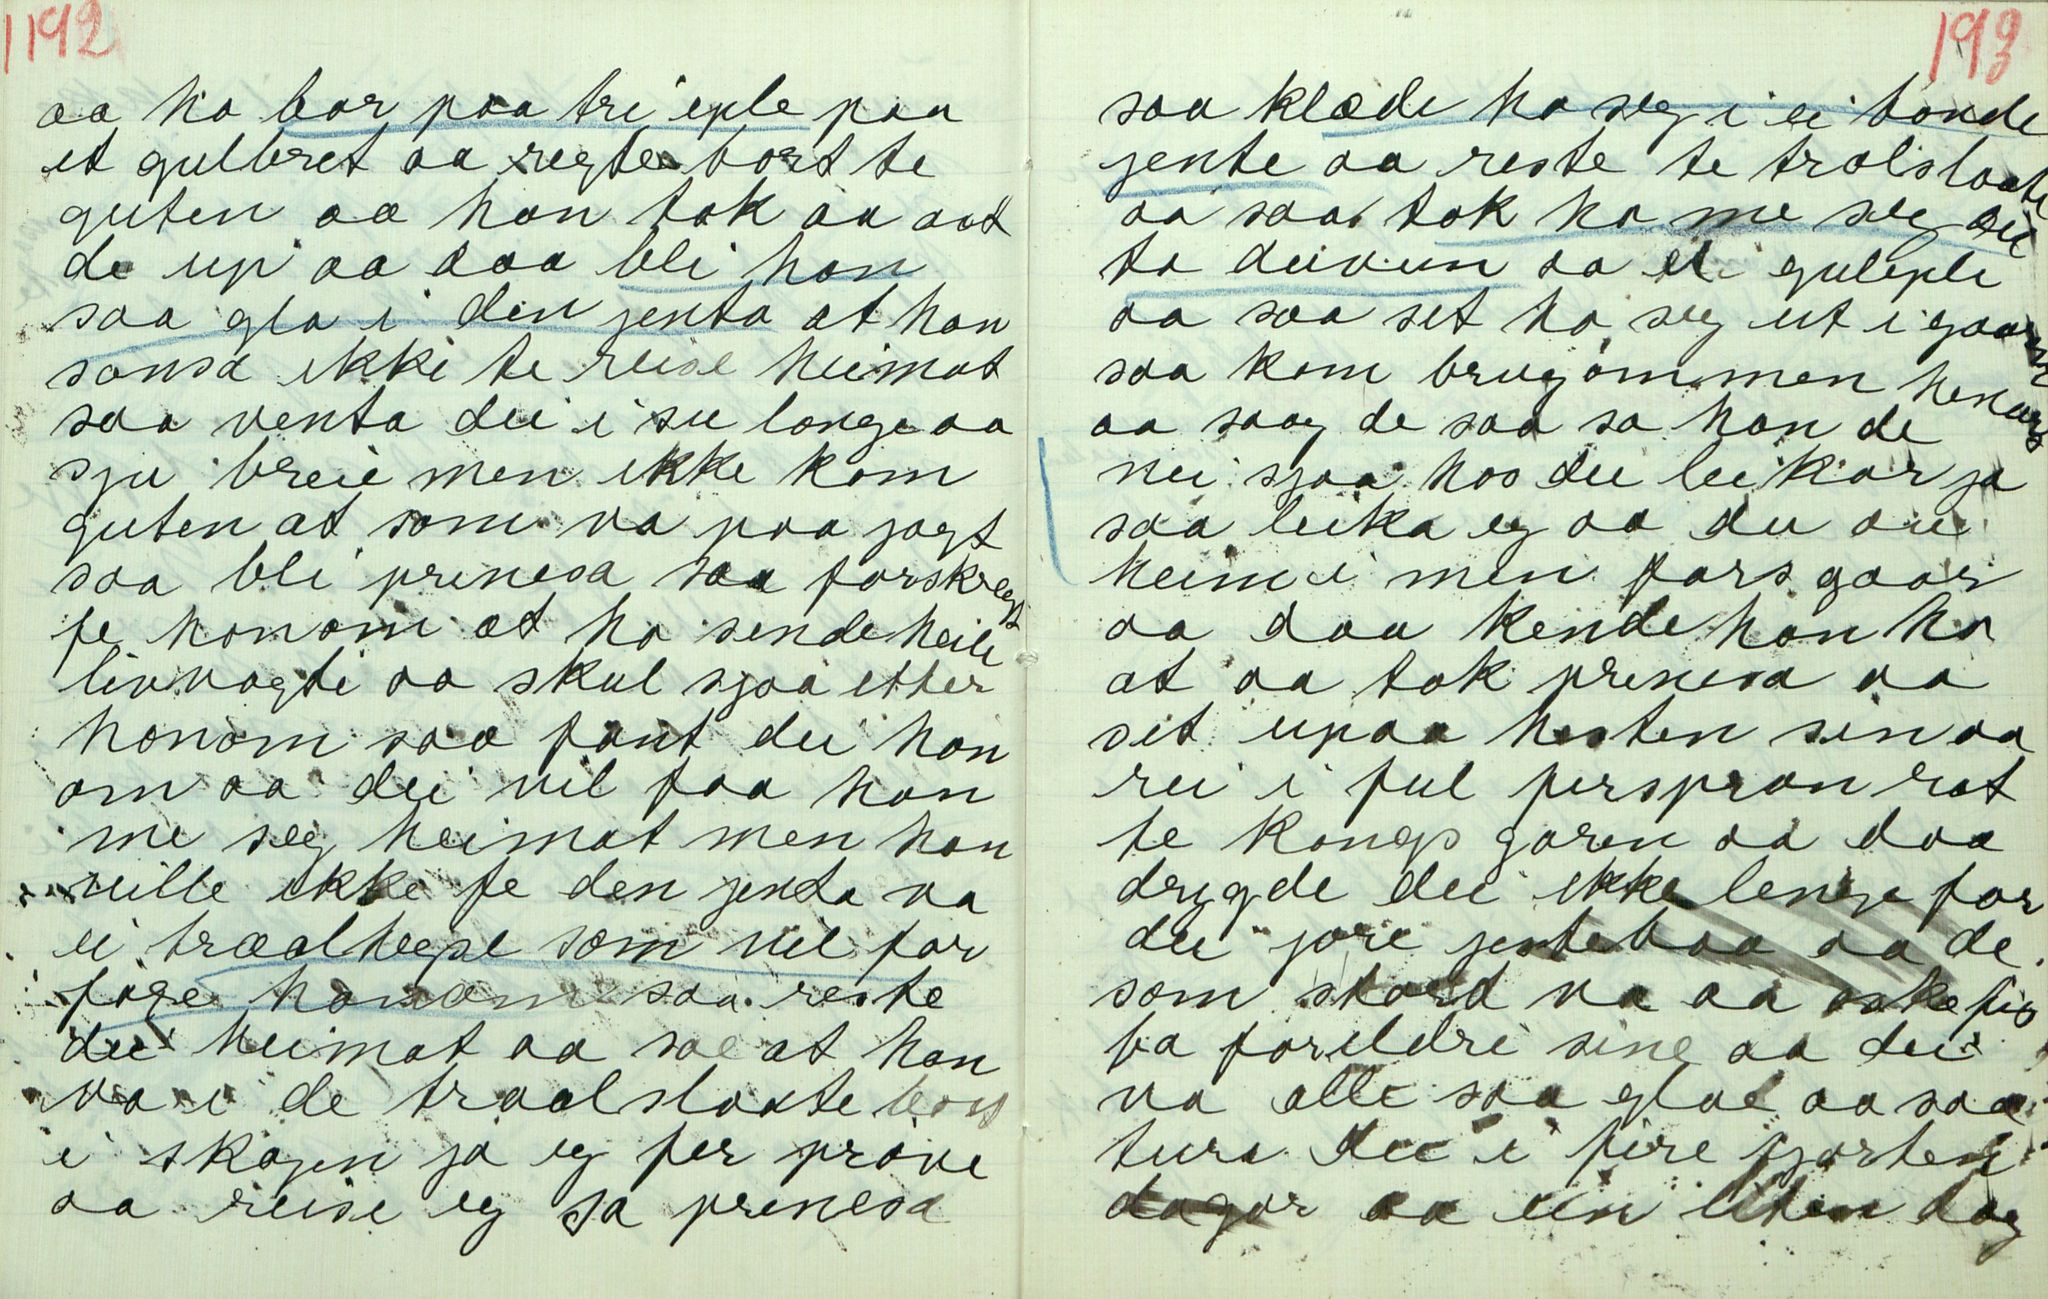 192
aa ho bar paa tri eple paa
et gulbret aa regte bort te
guten aa han tok aa aat
de up aa daa blei han
saa gla i den jenta at han
sansa ikki te reise heimat
saa venta dei i su lange aa
sju breie men ikke kom
guten at som va paa jagt
saa blei prinesa saa forskregt
fe honom at ho sende heile
livvagti aa skul sjaa etter
honom saa fant dei han
om aa dei vil faa han
me seg heimat men han
ville ikke fe den jenta va
ei trædlhegse som vil for
føre honom saa reste
dei heimat aa sae at han
va i de traalslaate bort
i skogen ja eg fer prøve
aa reise eg sa prinesa
193
saa klæde ho seg i ei bonde
jente aa reste te trolslaate
aa saa tok ho me seg
to deivun aa ei guleple
aa saa set ho seg ut i gaaren
saa kom brugommen henars
aa saag de saa sa han de
nei sjaa hos dei leikar ja
saa leika eg aa du au
heim i min fars gaar
aa daa kende han ho
at aa tok prinesa aa
set upaa hesten sin aa
rei i ful firspran rat
te kongs garen aa daa
drygde dei ikke lenge før
dei jore jestebaa aa de
som stord va aa fik
ba foreldre sine aa dei
va alle saa glae aa saa
tura dei i fire fjorten
dagar aa ein liten dag